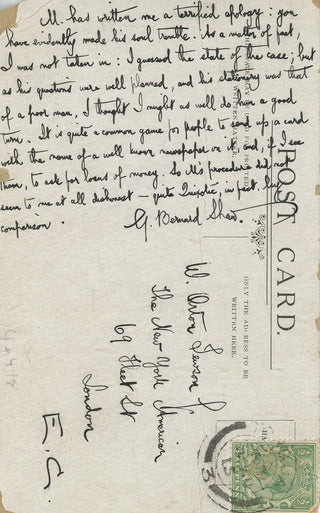 M. has written me a terrified apology: you
have evidently made his soul tremble. As a matter of fact,
I was not taken in: I guessed the state of the case; but
as his questions were well planned, and his stationery was that
of a poor man, I thought I might as well do him a good
turn. It is quite a common game for people to send up a card
with the name of a well known newspaper on it, and, if I see
them, to ask for loans of money. So M's procedure did not
seem to me at all dishonest – quite Quixotic, in fact, by
comparison.
G. Bernard Shaw.
POST CARD.
ONLY THE ADDRESS TO BE
WRITTEN HERE.
W. Orton Tewson
The New York American
69 Fleet St
London
E.C.